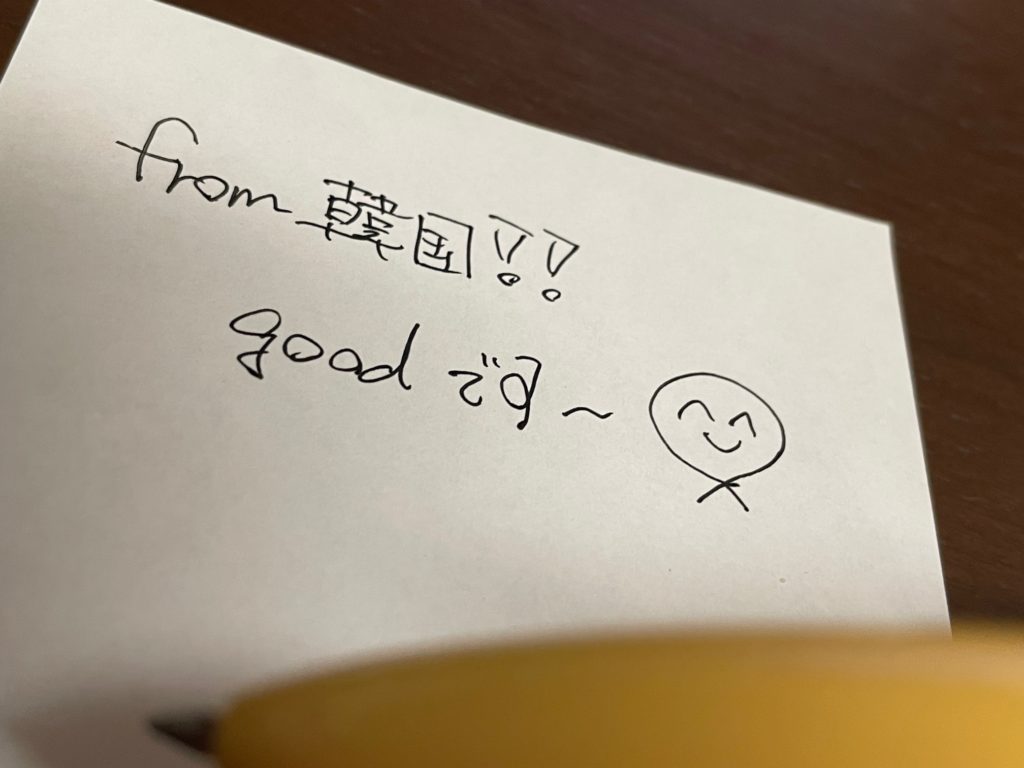 from 韓国!!
good です～